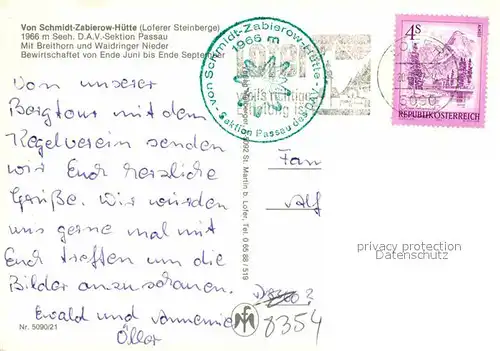 Von Schmidt-Zabierow-Hütte (Loferer Steinberge)
1966 m Seeh. D.A.V.-Sektion Passau
Mit Breithorn und Waidringer Nieder
Bewirtschaftet von Ende Juni bis Ende Septem
Von unserer
Bergtour mit dem
Kegelverein senden
wir Euch herzliche
Grüße. Wir würden
uns gerne mal mit
Euch treffen um die
Bilder anzuschauen.
Ewald und Annemie
Öller
Nr. 5090/21
von-Schmidt-Zabierow-Hütte
1966 m
Sektion Passau des D.A.V.
5092 St. Martin b. Lofer, Tel. 0 65 88 / 519
4S
REPUBLIK ÖSTERREICH
Fam
Alf
privacy protection
Veritatis.com
8354